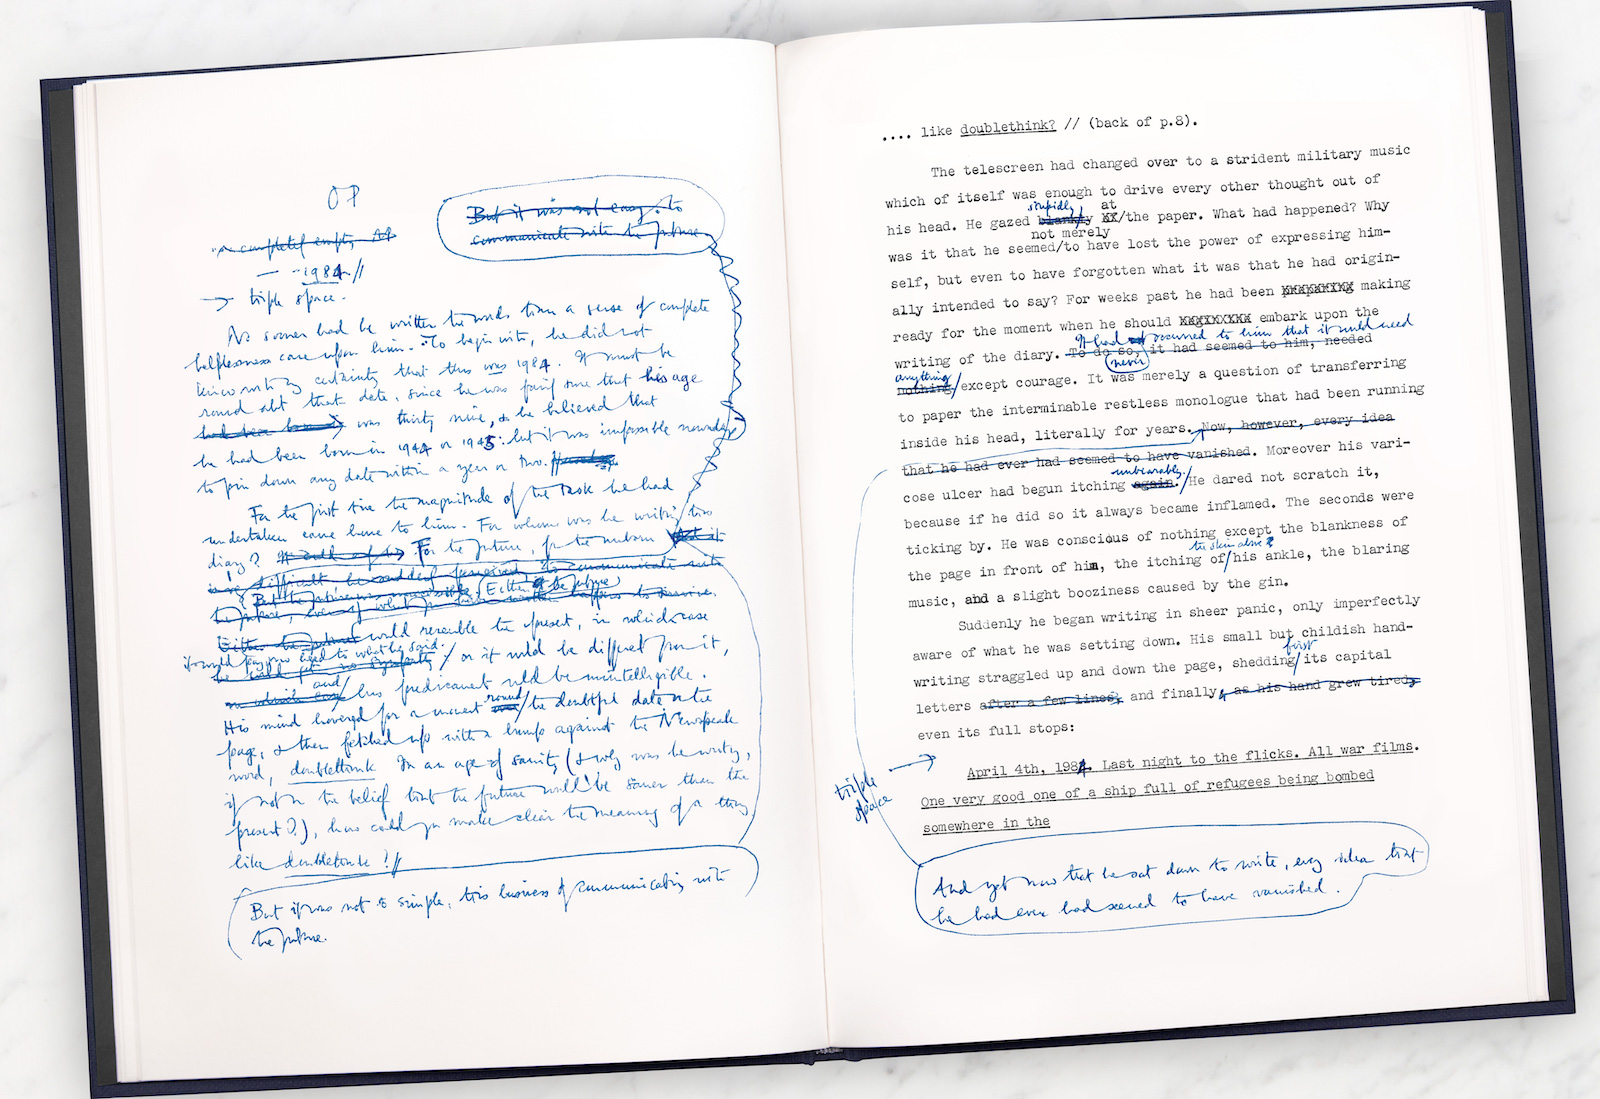 OP
But it was not easy to
communicate with the future
a completely empty, At
— 1984 //
→ triple space.
As sooner had he written the words than a sense of complete
helplessness came upon him. To begin with, he did not
know with any certainty that this was 1984. It must be
round abt that date, since he was fairly sure that his age
was thirty nine, & he believed that
he had been born in 1944 or 1945: but it was impossible nowadays
to pin down any date within a year or two.
For the first time the magnitude of the task he had
undertaken came home to him. For whom was he writing this
diary? For the future, for the unborn
difficult he suddenly perceived, to communicate with
But the future was Either the future
the future, even if what
Either the future would resemble the present, in which case
it would pay no heed to what he said:
he would get no sympathy / or it would be different from it,
and / his predicament would be unintelligible.
His mind hovered for a moment round / the doubtful date on the
page, & then fetched up with a bump against the Newspeak
word, doublethink. In an age of sanity (& why was he writing,
if not in the belief that the future would be saner than the
present?), how could you make clear the meaning of a thing
like doublethink? //
But it was not so simple, this business of communicating with
the future.
.... like doublethink? // (back of p.8).
The telescreen had changed over to a strident military music
which of itself was enough to drive every other thought out of
stupidly at
his head. He gazed blankly XX/the paper. What had happened? Why
not merely
was it that he seemed/to have lost the power of expressing him-
self, but even to have forgotten what it was that he had origin-
ally intended to say? For weeks past he had been preparing making
ready for the moment when he should embark upon the
It had occurred to him that it would need
writing of the diary. To do so, it had seemed to him, needed
anything never
nothing/except courage. It was merely a question of transferring
to paper the interminable restless monologue that had been running
inside his head, literally for years. Now, however, every idea
that he had ever had seemed to have vanished. Moreover his vari-
unbearably.
cose ulcer had begun itching again./He dared not scratch it,
because if he did so it always became inflamed. The seconds were
ticking by. He was conscious of nothing except the blankness of
the skin above
the page in front of him, the itching of/his ankle, the blaring
music, and a slight booziness caused by the gin.
Suddenly he began writing in sheer panic, only imperfectly
aware of what he was setting down. His small but childish hand-
first
writing straggled up and down the page, shedding/its capital
letters after a few lines, and finally, as his hand grew tired,
even its full stops:
triple
space
April 4th, 1984. Last night to the flicks. All war films.
One very good one of a ship full of refugees being bombed
somewhere in the
And yet now that he sat down to write, every idea that
he had ever had seemed to have vanished.